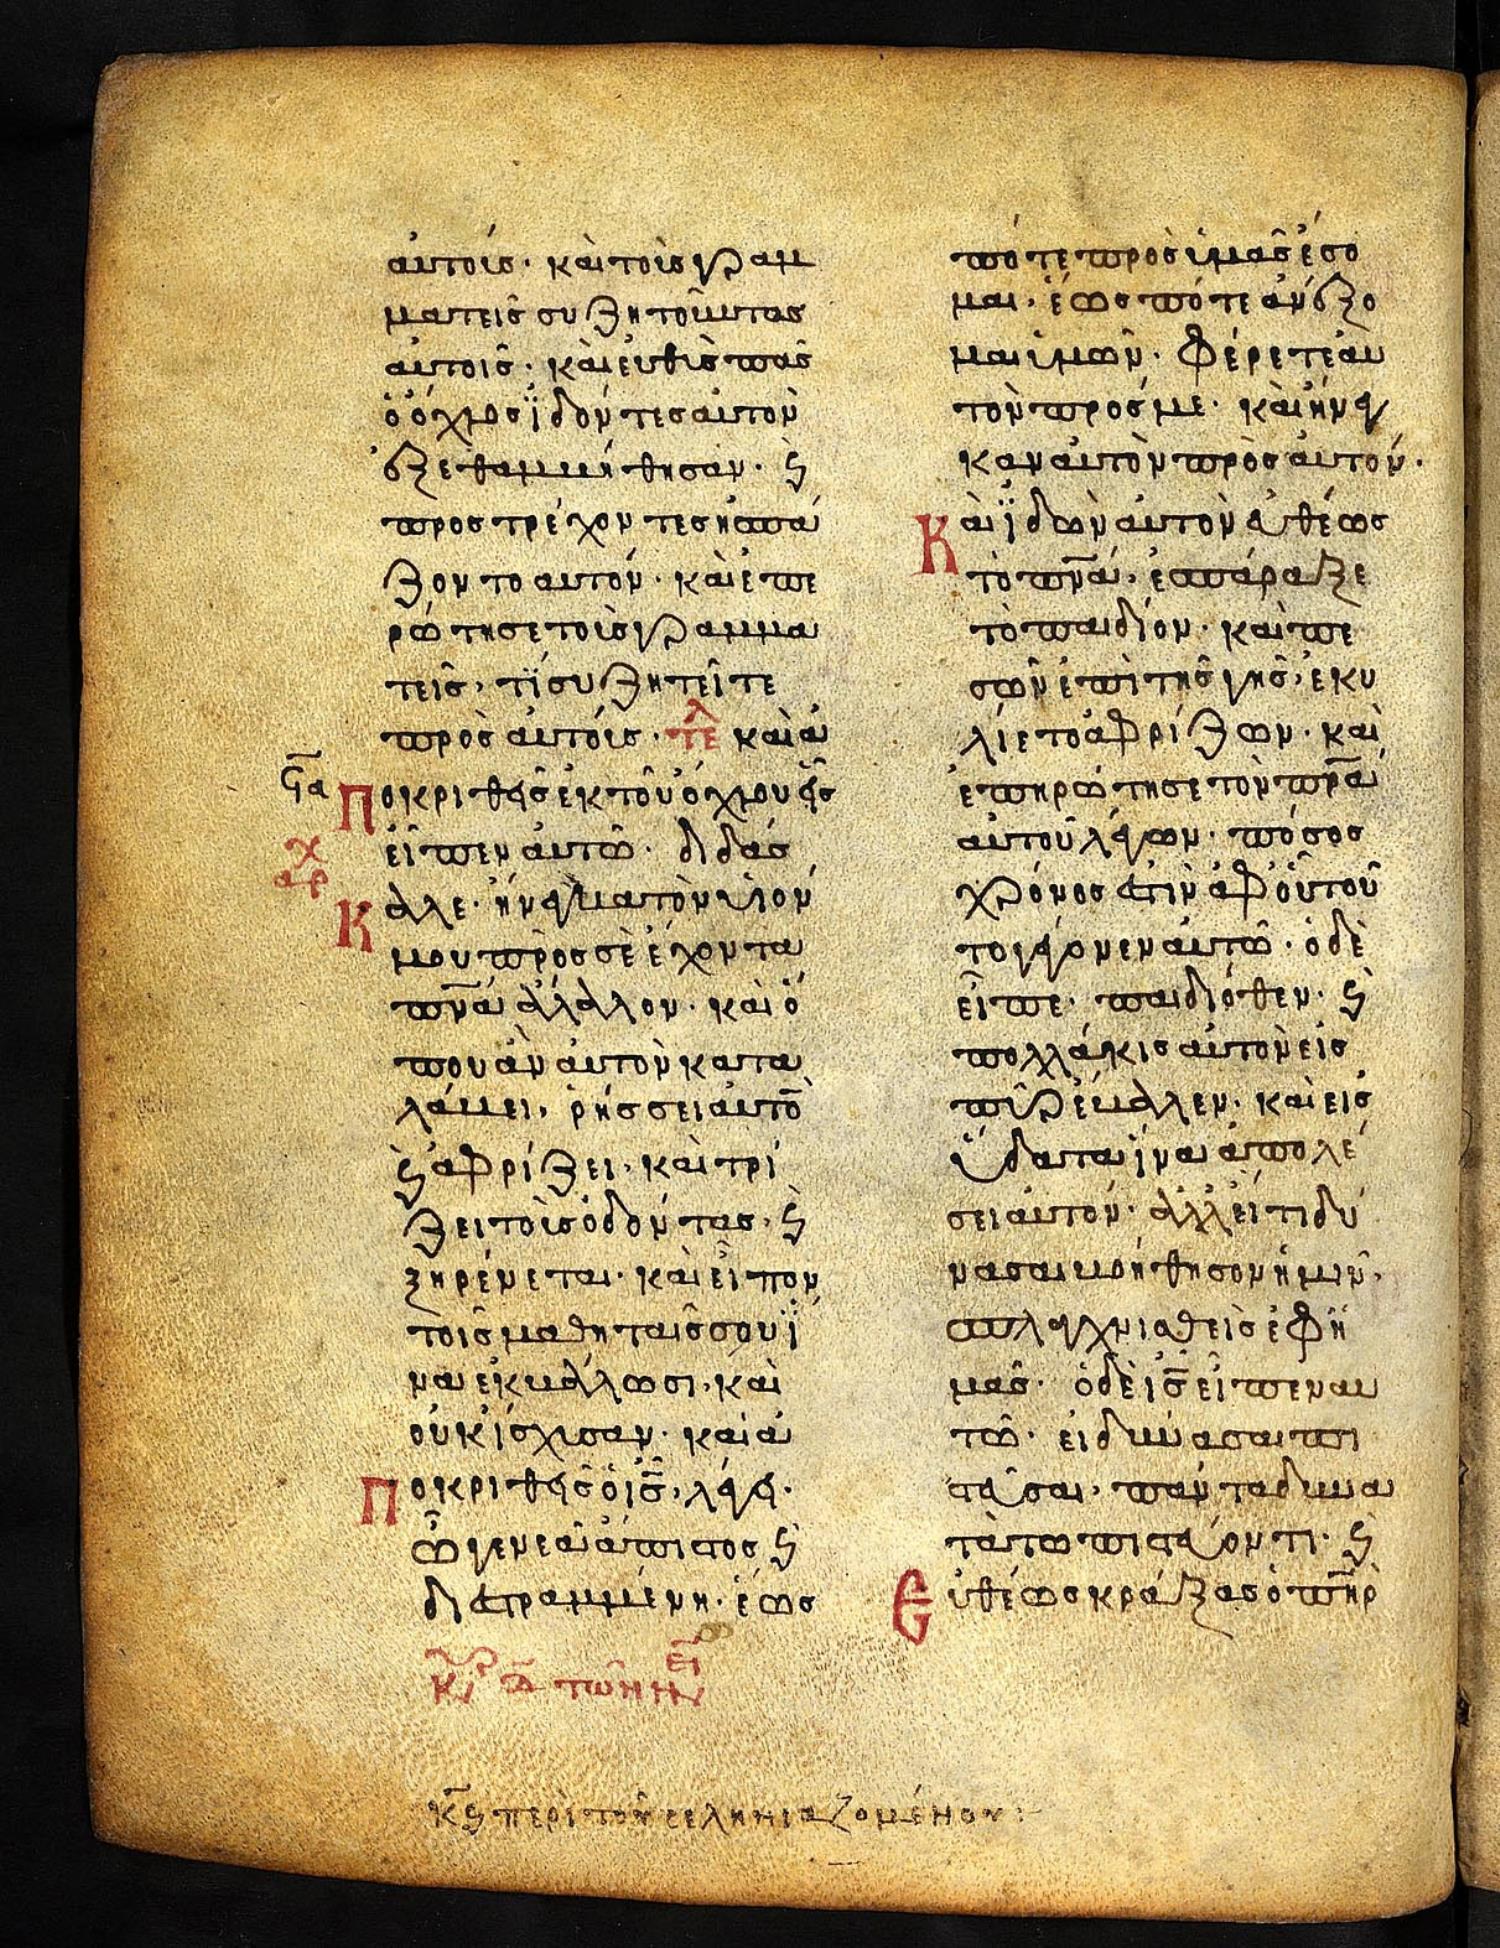 αὐτοίς· καὶ τοὶς γραμ
ματεῖς συζητοῦντας
αὐτοῖς· καὶ εὐθὺς πᾶς
ὁ ὄχλος ϊδόντες αὐτὸν
ἐξεθαμβήθησαν· ϛ̀
προστρέχοντες ἠσπά
ζοντο αυτόν· καὶ ἐπε
ρώτησε τοὶς γραμμα
τεῖς, τί συζητεῖτε
πρὸς αὐτοίς· τε̅λ καὶ ἀ
ϟα
Ποκριθεὶς ἐκ τοῦ ὄχλου εἷς
εἶπεν αὐτῶ· διδάσ
χ
αρ
Κάλε· ἤνεγκα τὸν υἱόν
μου πρὸς σὲ ἔχοντα
πν̅α ἄλαλον· καὶ ὅ
που ἂν αὐτὸν κατα
λάβει, ῥήσσει αὐτο̅
ϛ̀ ἀφρίζει, καὶ τρί
ζει τοὶς ὀδόντας, ϛ̀
ξηρένεται· καὶ εἶπον
τοῖς μαθηταῖς σου ϊ
να εκβάλωσι, καὶ
οὐκ ἴσχυσαν· καὶ ἀ
Ποκριθεὶς ὁ ι̅ς̅, λέγει·
ὦ γενεὰ ἄπιστος ϛ̀
διεστραμμένη· ἕως
πότε πρὸς ὑμᾶς ἔσο
μαι, ἕως πότε ἀνέξο
μαι ὑμῶν· φέρετε αὐ
τὸν πρός με· καὶ ἤνεγ
καν αὐτὸν πρὸς αὐτόν·
Καὶ ϊδὼν αὐτὸν εὐθέως
τὸ πν̅α, ἐσπάραξε
τὸ παιδίον· καὶ πε
σῶν ἐπὶ τῆς γῆς, ἐκυ
λίετο ἀφρίζων· καὶ
ἐπηρώτησε τὸν πρ̅α
αὐτοῦ λέγων· πόσος
χρόνος ἐστὶν ἀφ οὗ τοῦ
το γέγονεν αὐτῶ· ὁ δὲ
εἶπε· παιδιόθεν· ϛ̀
πολλάκις αὐτὸν εἰς
πῦρ ἔβαλεν· καὶ εἰς
ὕδατα ἵνα ἀπολέ
σει αὐτόν· ἀλλ εἴ τι δύ
νασαι βοήθησον ἡμῖν,
σπλαγχνισθεὶς ἐφ ἡ
μᾶς· ὁ δὲ ι̅ς̅ εἶπεν αυ
τῶ· εἰ δύνασαι πι
στεῦσαι, πάντα δυνα
τὰ τω πιστεύοντι· ϛ̀
Εὐθέως κράξας ὁ π̅η̅ρ̀
κ̅ϛ̅ περὶ τοῦ σεληνιαζομένου :